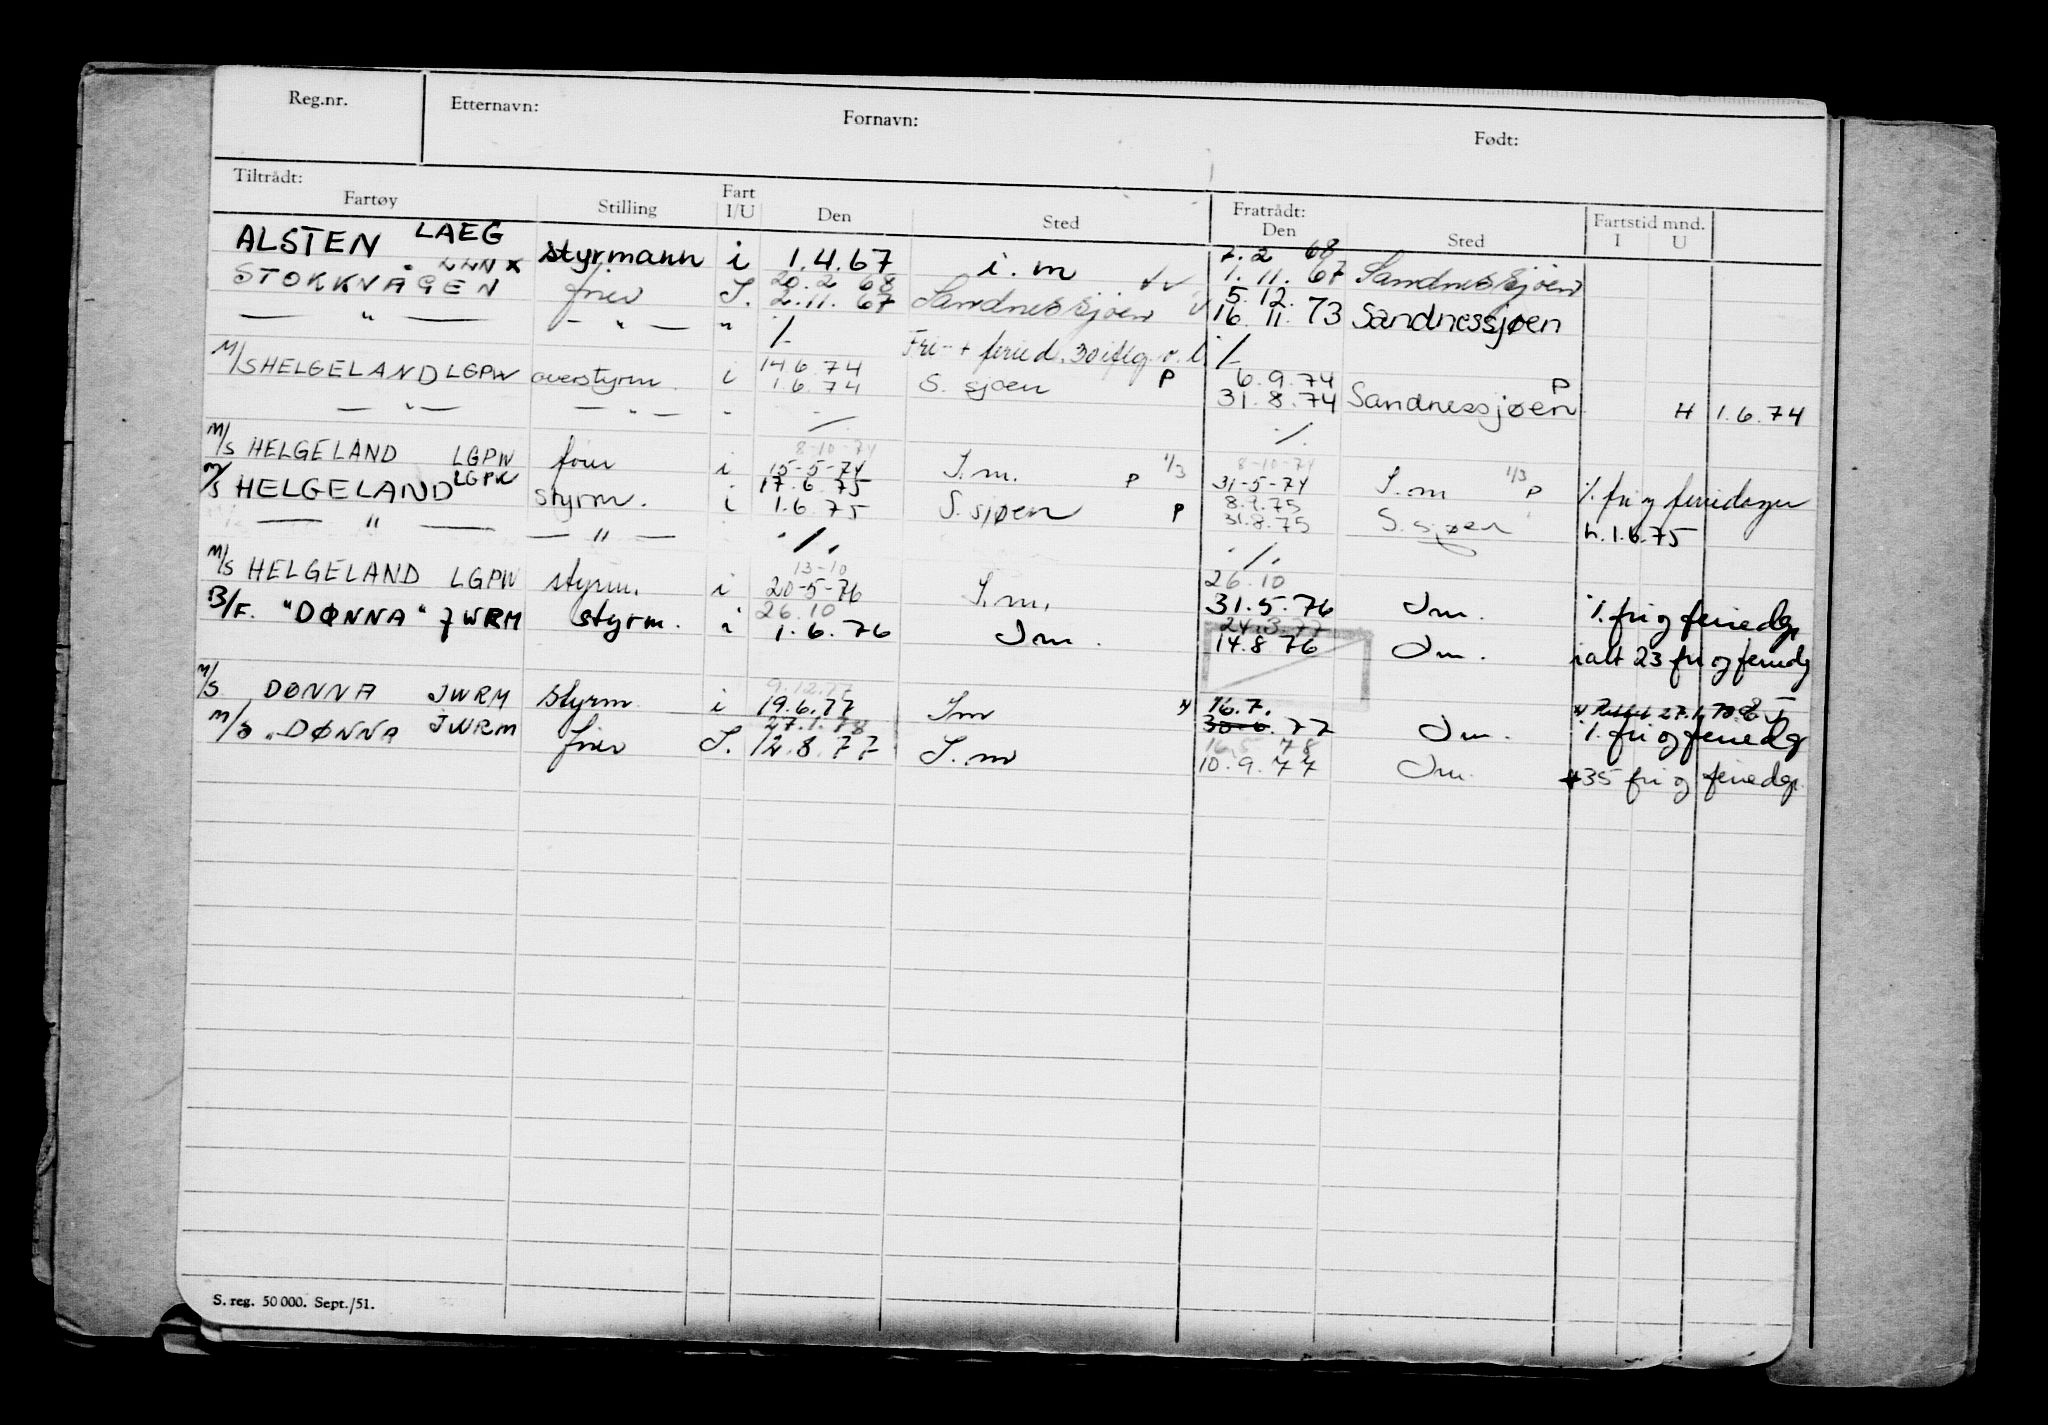 Reg.nr. Etternavn: Fornavn: Født:
Tiltrådt: Fartøy Stilling Fart I/U Den Sted Fratrådt: Den Sted Fartstid mnd. I U
7.2 68
ALSTEN LAEG styrmann i 1.4.67 i.m 1.11.67 Sandnessjøen
20.2 68 5.12.
STOKKVÅGEN LLNX I. 2.11.67 Sandnessjøen 16.11.73 Sandnessjøen
— " — — " — " ·/- 30 ·/-
14.6.74 6.9.74
M/S HELGELAND LGPW overstyrm. i 1.6.74 S. sjøen P 31.8.74 Sandnessjøen P H 1.6.74
— " — — " — " ·/. ·/.
8-10-74 8-10-74
M/S HELGELAND LGPW i 15-5-74 I.m. P 1/3 31-5-74 I.m 1/3 P ·/. fri og feriedager
17.6.75 8.9.75
M/S HELGELAND LGPW styrm. i 1.6.75 S. sjøen P 31.8.75 S. sjøen h. 1.6.75
— " — — " — ·/. ·/.
13-10 26.10
M/S HELGELAND LGPW styrm. i 20-5-76 I.m. 31.5.76 Im. ·/. fri og feriedg.
26.10 24.3.77
B/F. "DØNNA" JWRM styrm. i 1.6.76 Im. 14.8 76 Im. ialt 23 fri og feriedg
9.12.77 16.7.
M/S DØNNA JWRM styrm i 19.6.77 Im 30.6.77 Im. ·/. fri og feriedg
27.1.78 16.5 78
M/S "DØNNA JWRM I. 12.8.77 I.m 10.9.77 Im. +35 fri og feriedg.
S. reg. 50 000. Sept./51.